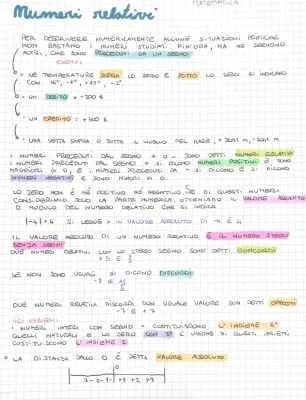 MATEMATICA
Numeri relativi
PER DESCRIVERE NUMERICAMENTE ALCUNE SITUAZIONI PRATICHE
NON BASTANO I NUMERI STUDIATI FIN'ORA, MA NE SERVONO
ALTRI, CHE SONO PRECEDUTI DA UN SEGNO
ESEMPI
LE TEMPERATURE SOPRA LO ZERO E SOTTO LO ZERO SI INDICANO
CON
UN DEBITO = -500 €
UN CREDITO = +500 €
UNA VETTA SOPRA O SOTTO IL LIVELLO DEL MARE,
I NUMERI PRECEDUTI DAL SEGNO + O - SONO DETTI NUMERI RELATIVI
I NUMERI PRECEDUTI DAL SEGNO + SI DICONO NUMERI POSITIVI E SONO
MAGGIORI DI 0, E I NUMERI PRECEDUTI DA - SI DICONO E SI DICONO
NUMERI NEGATIVI E SONO MINORI DI 0
LO ZERO NON È NÉ POSITIVO NÉ NEGATIVO SE DI QUESTI NUMERI
CONSIDERIAMO SOLO LA PARTE NUMERICA, OTTENIAMO IL VALORE ASSOLUTO
O MODULO DEL NUMERO RELATIVO CHE SI INDICA
|-4|=4 SI LEGGE = IL VALORE ASSOLUTO DI -4 È 4
IL VALORE ASSOLUTO DI UN NUMERO RELATIVO È IL NUMERO STESSO
SENZA SEGNO
DUE NUMERI RELATIVI CON LO STESSO SEGNO SONO DETTI CONCORDI
+5 E
SE NON SONO UGUALI SI DICONO DISCORDI
-7 E
DUE NUMERI RELATIVI DISCORDI CON UGUALE VALORE SON DETTI OPPOSTI
-7 E +7
GLI INSIEMI
I NUMERI INTERI CON SEGNO - COSTITUISCONO L'INSIEME Z⁻
QUELLI NATURALI E LO ZERO CON Z⁺, L'UNIONE DI QUESTI INSIEMI
COSTITUISCONO L'INSIEME Z
LA DISTANZA DALLO 0 È DETTA VALORE ASSOLUTO
-3 -2 -1 +1 +2 +3